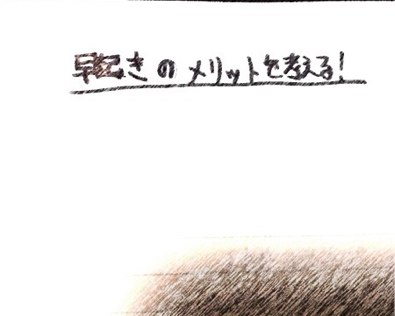 早起きのメリットを考える!